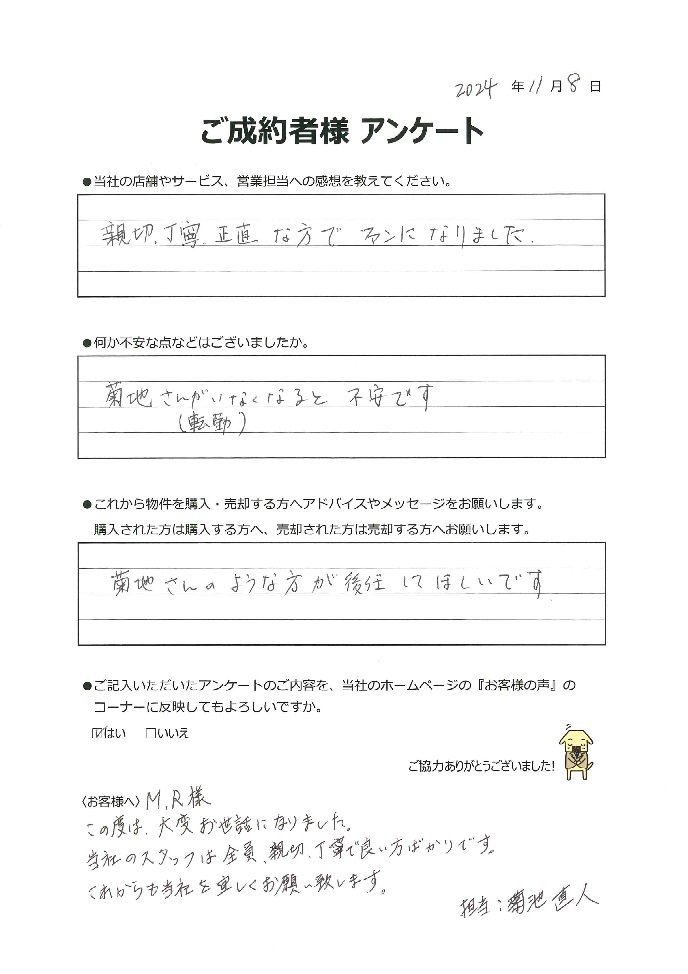 2024 年 11 月 8 日
ご成約者様 アンケート
●当社の店舗やサービス、営業担当への感想を教えてください。
親切、丁寧、正直 な方で ファンに なりました。
●何か不安な点などはございましたか。
菊地 さんがいなくなると 不安です
(転勤)
●これから物件を購入・売却する方へアドバイスやメッセージをお願いします。
購入された方は購入する方へ、売却された方は売却する方へお願いします。
菊地 さんの ような 方 が 後任 してほしいです
●ご記入いただいたアンケートのご内容を、当社のホームページの『お客様の声』の
コーナーに反映してもよろしいですか。
☑はい □いいえ
ご協力ありがとうございました!
〈お客様へ〉 M.R様
この度は、大変お世話になりました。
当社のスタッフは全員、親切、丁寧で良い方ばかりです。
これからも当社を宜しくお願い致します。
担当:菊池 直人